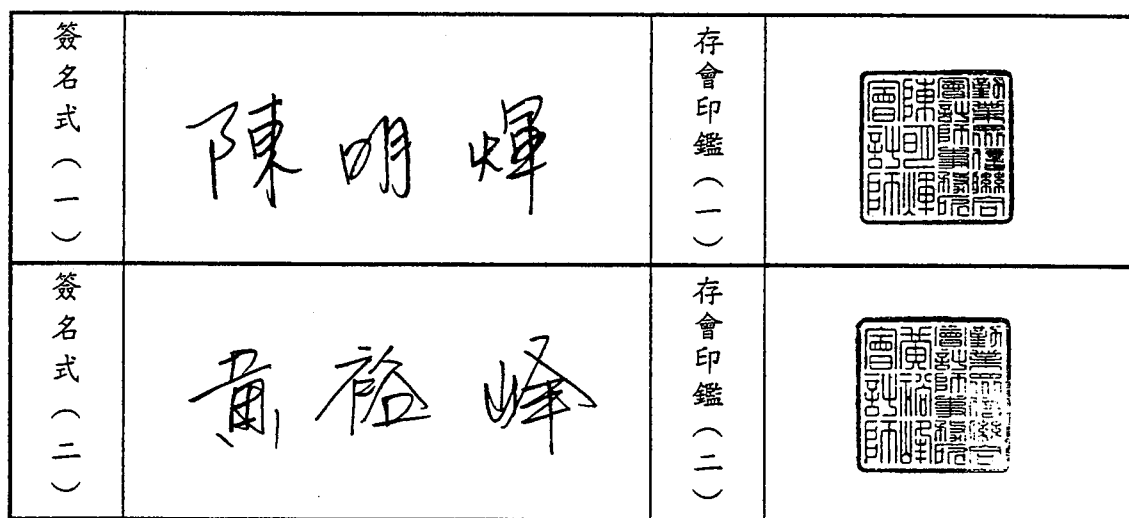 簽名式(一)
陳明輝
存會印鑑(一)
勤業眾信聯合
會計師事務所
陳明輝
會計師
簽名式(二)
黃裕峰
存會印鑑(二)
勤業眾信聯合
會計師事務所
黃裕峰
會計師